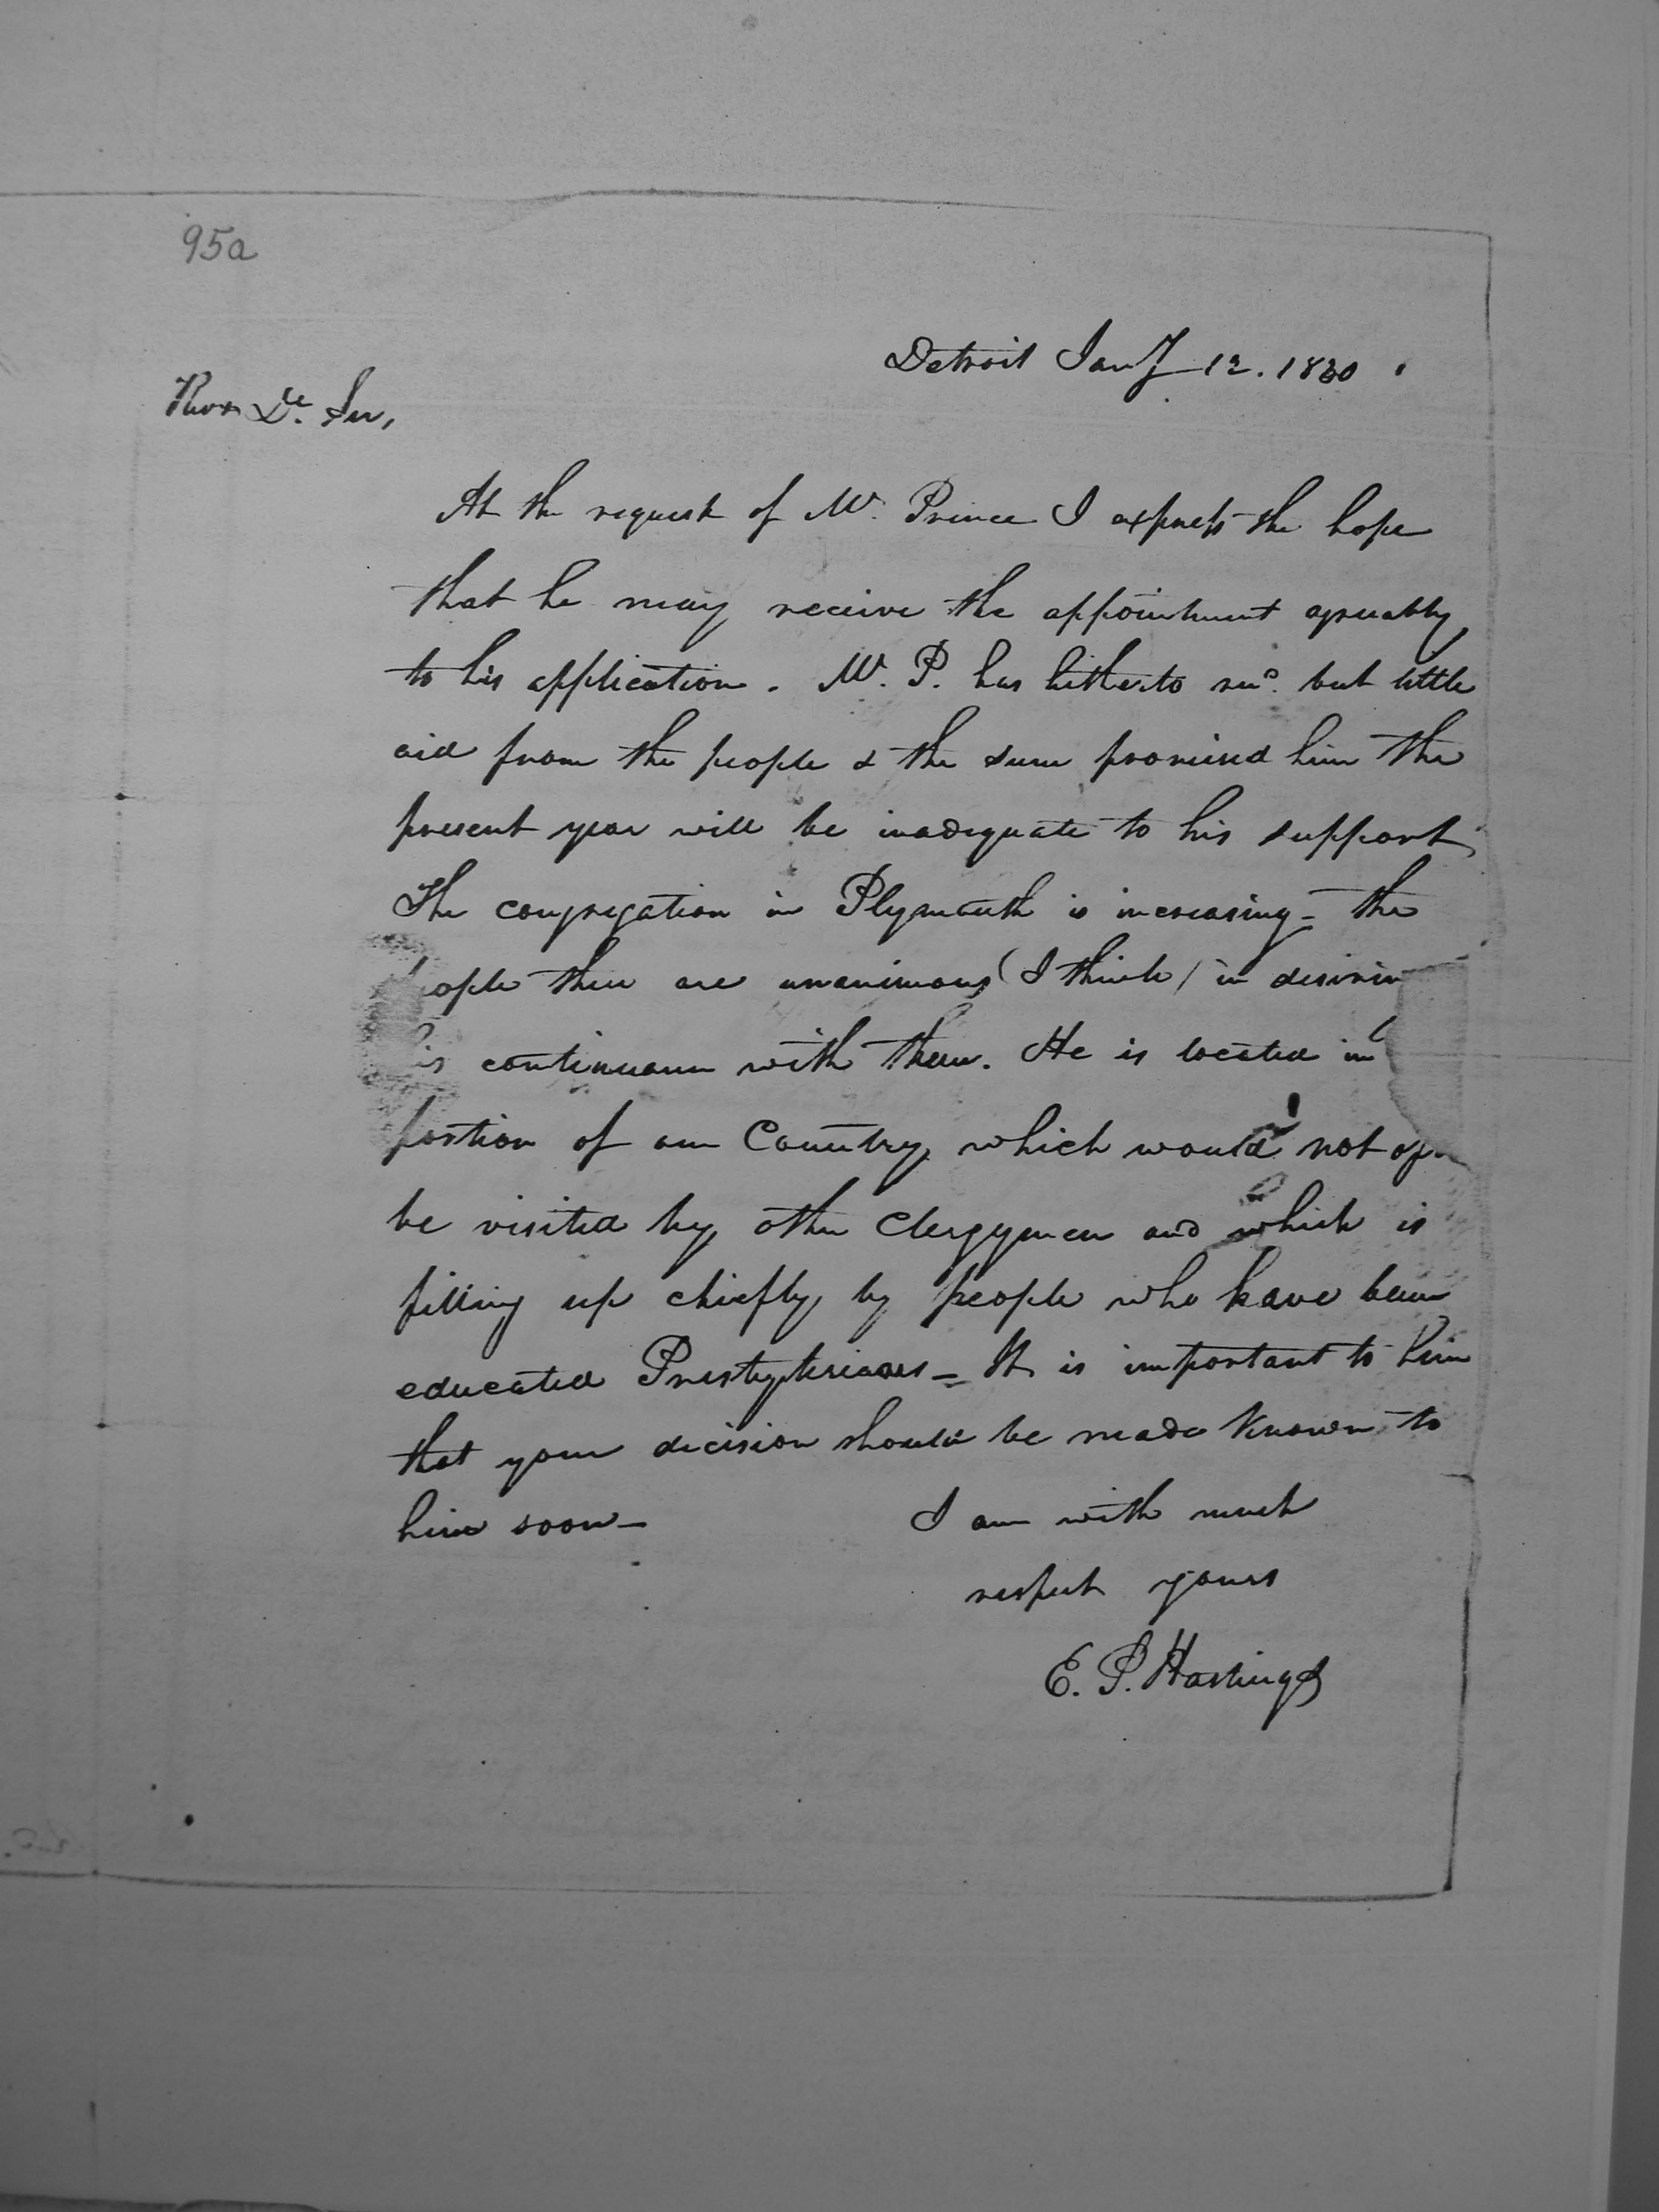 95a
Detroit Jany 12. 1830
Rev. Dr. Sir,
At the request of Mr. Prince I express the hope
that he may receive the appointment agreeably
to his application. Mr. P. has hitherto recd. but little
aid from the people & the sum promised him the
present year will be inadequate to his support
The congregation in Plymouth is increasing - the
eople there are unanimous (I think) in desirin
is continuance with them. He is located in
portion of our Country, which would not
be visited by other Clergymen and which is
filling up chiefly by people who have been
educated Presbyterians - It is important to him
that your decision should be made known to
him soon -
I am with much
respect yours
E. P. Hastings